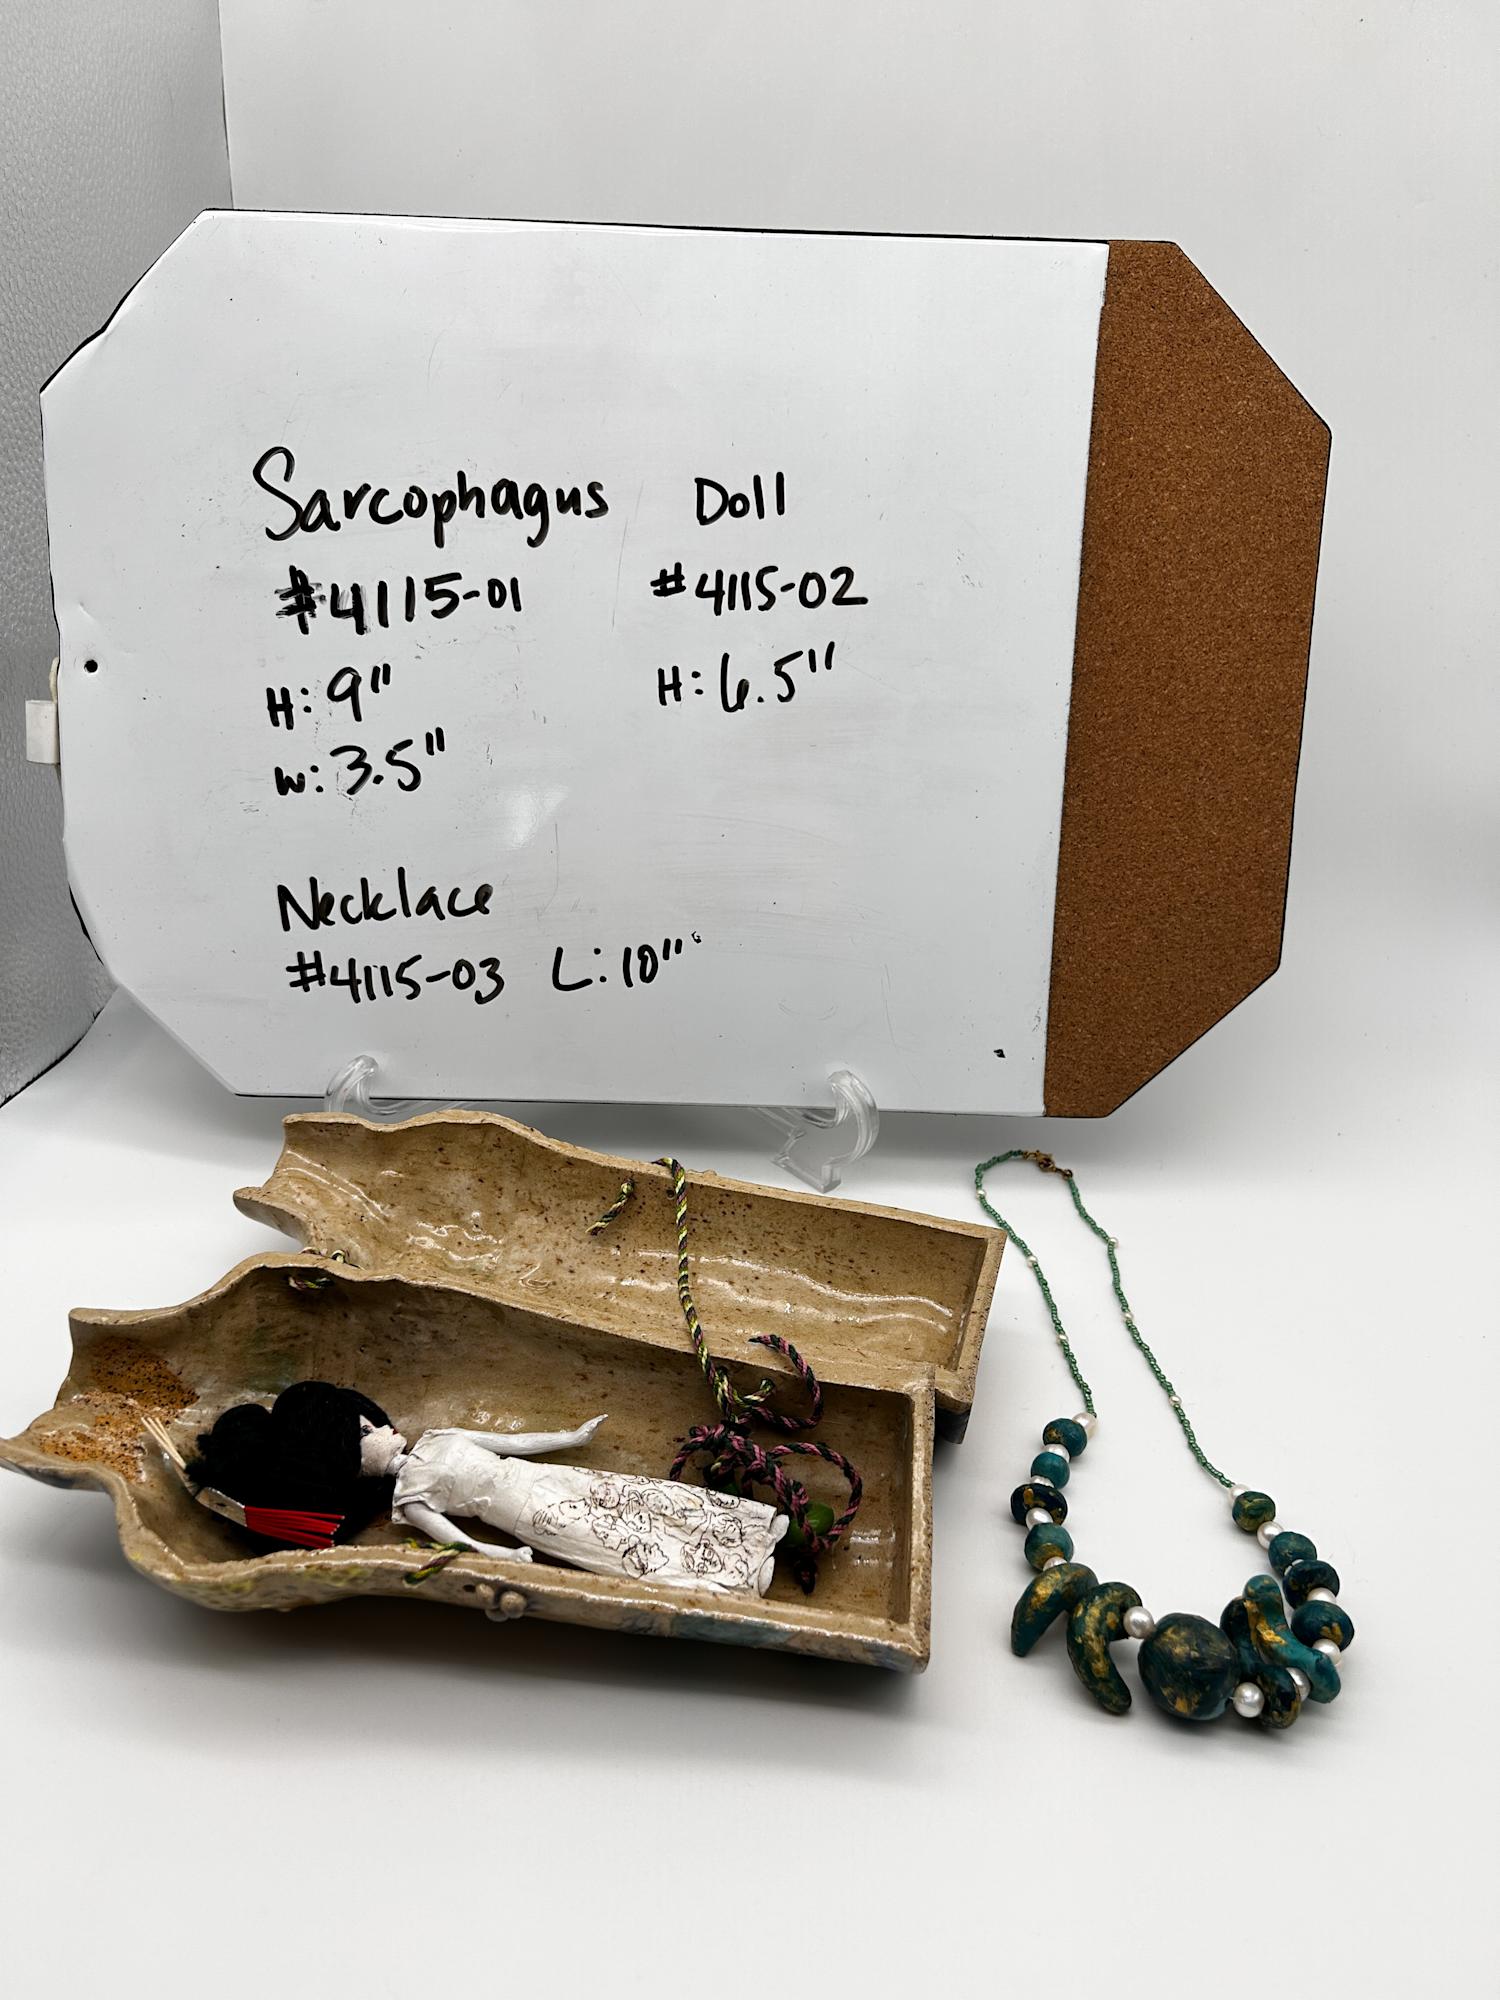 Sarcophagus
#4115-01
H: 9"
W: 3.5"
Doll
#4115-02
H: 6.5"
Necklace
#4115-03 L: 10"